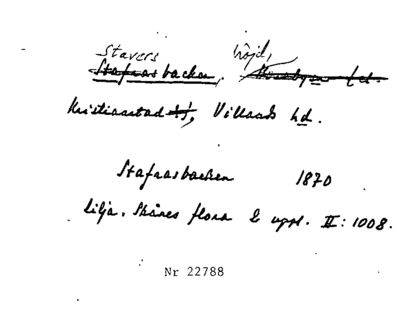 Stavers höjd,
Stafrasbacken,
Kristianstad, Villands hd.
Stafrasbacken 1870
Lilja. Skånes flora 2 uppl. II: 1008.
Nr 22788